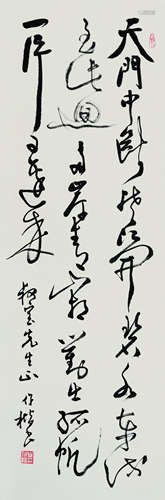 天門中断楚江開碧水東流
至此迴兩岸青山相對出孤帆
一片日邊來
先生正